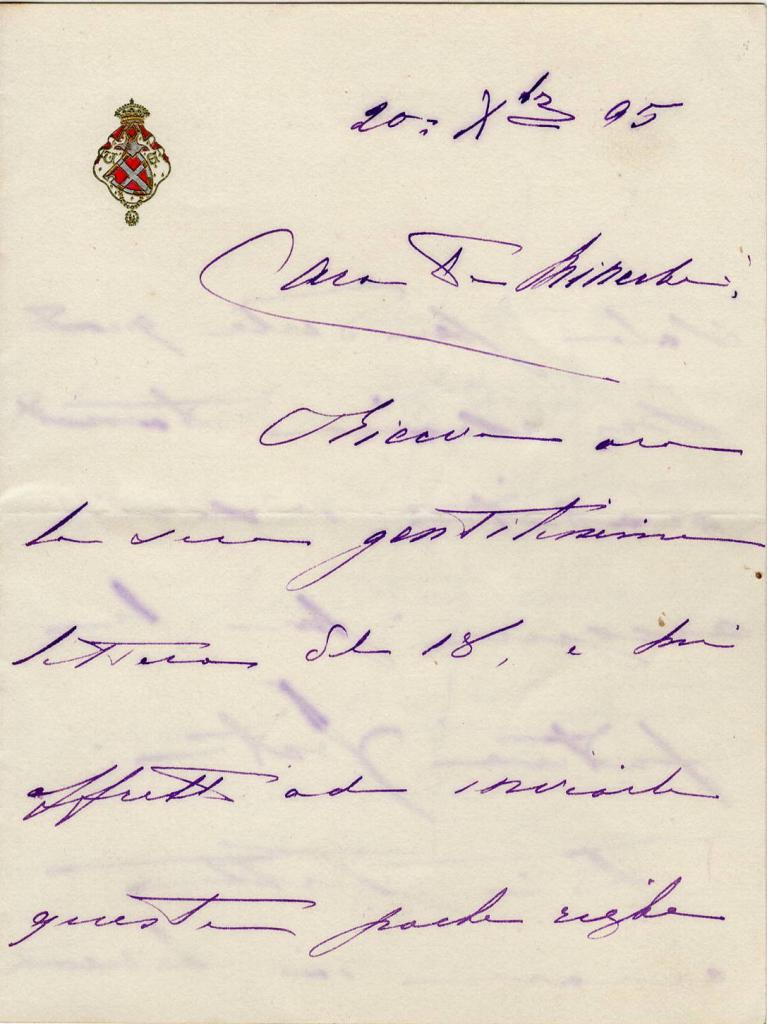 20: Xbr 95
Cara
Ricevo ora
la sua gentilissima
lettera del 18, e mi
affretto ad inviarle
queste poche righe